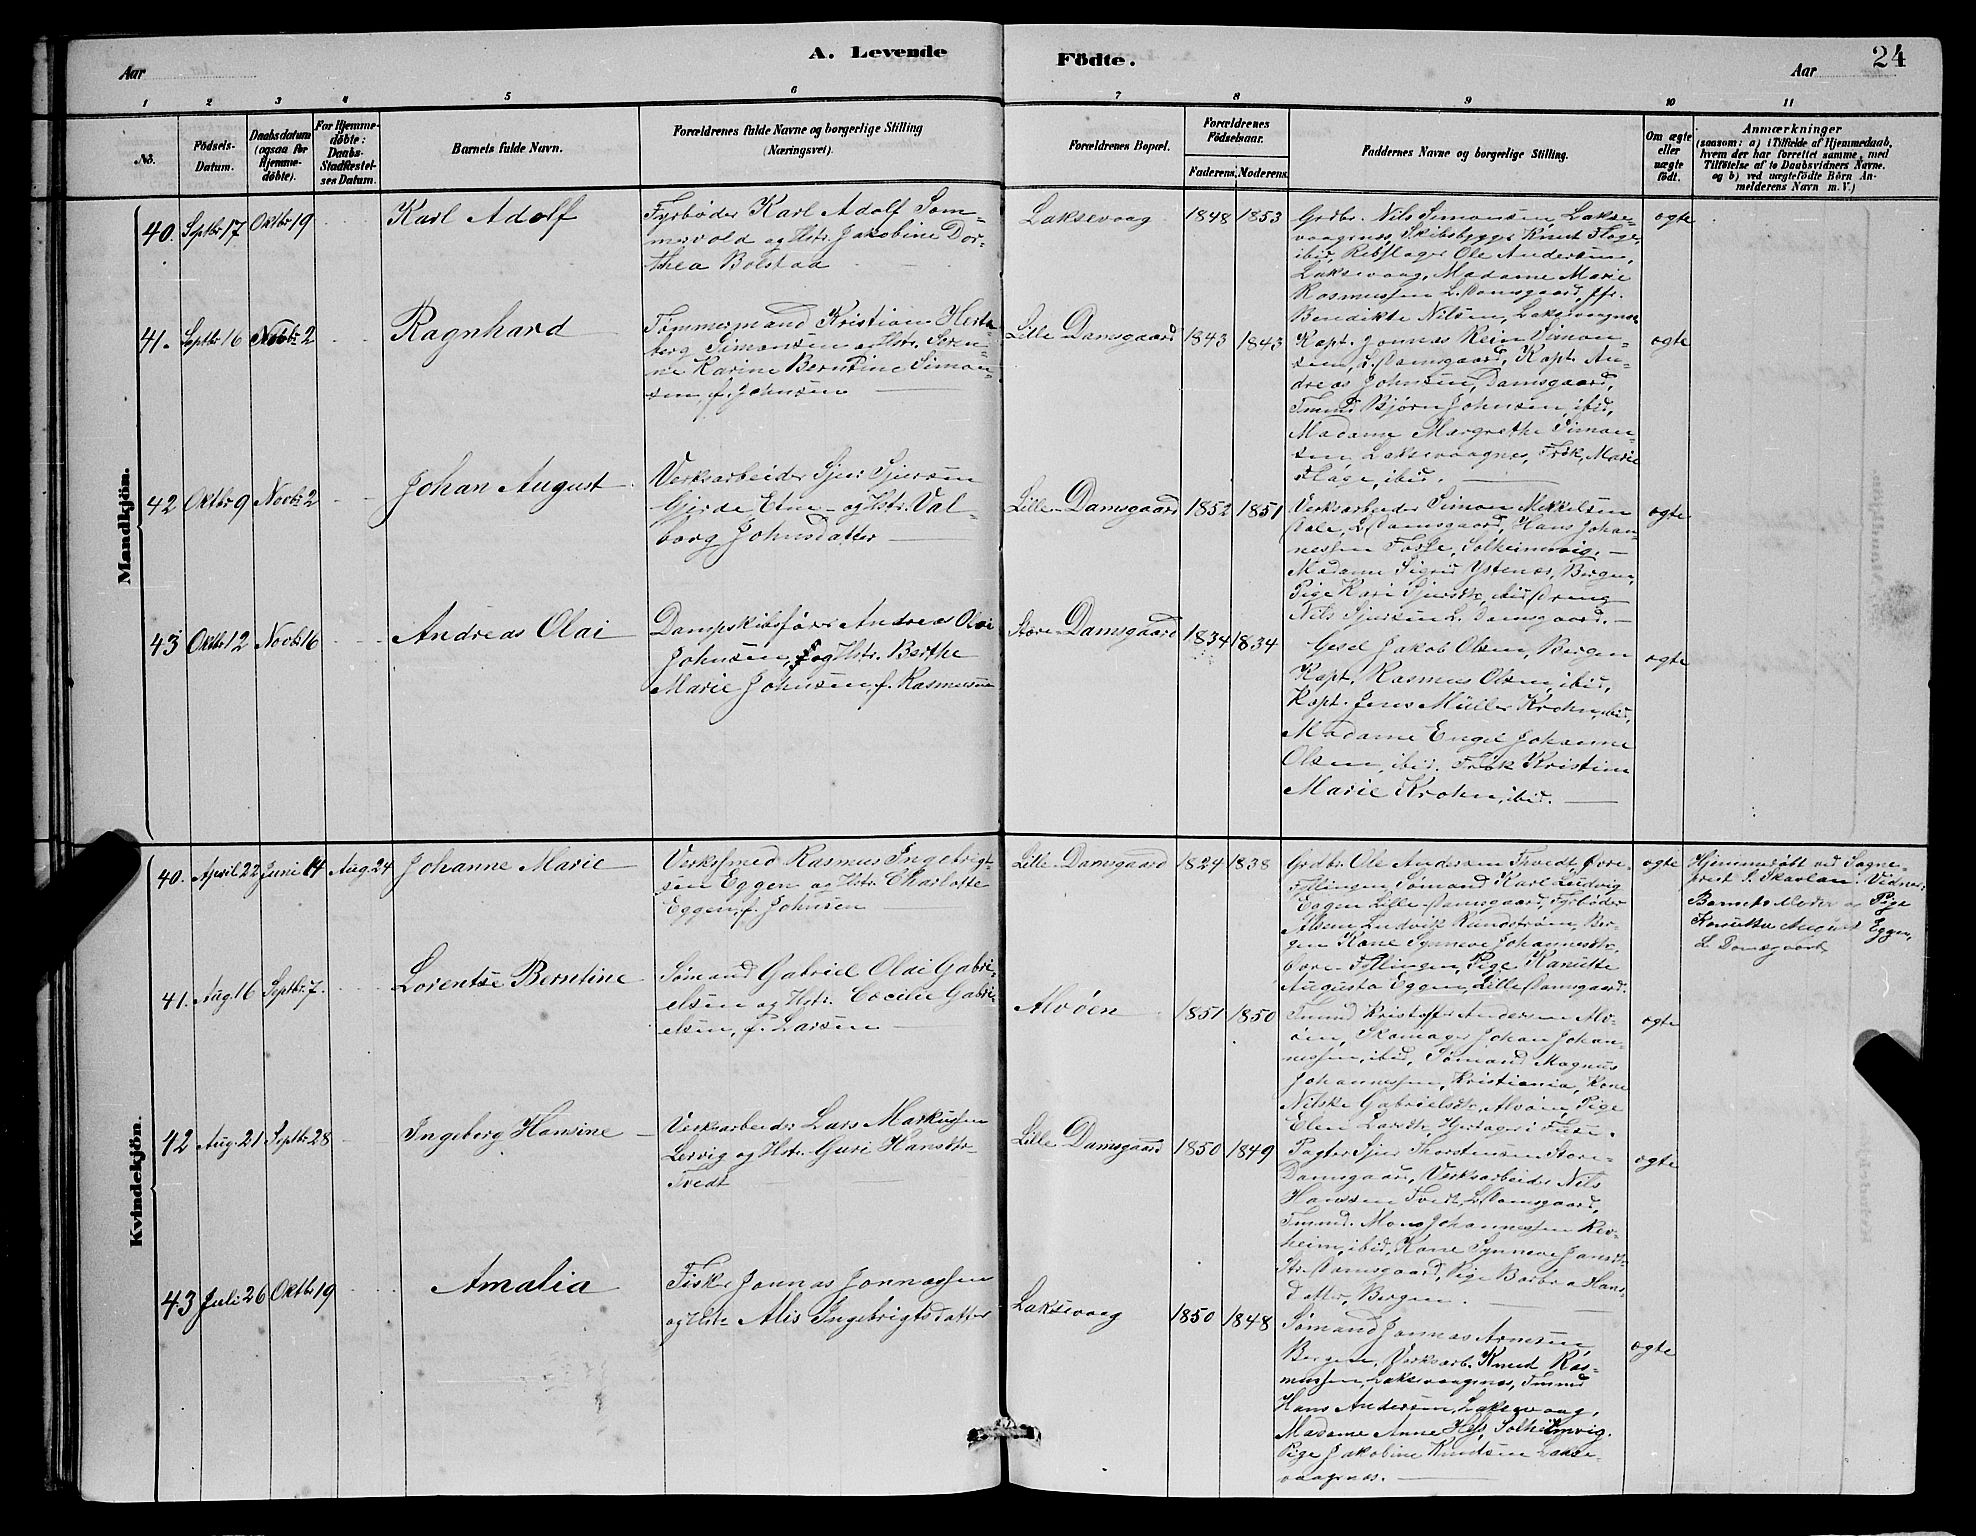 A. Levende Födte.
24
Aar
Aar
1 2 3 4 5 6 7 8 9 10 11
No.
Födsels-
Datum.
Daabsdatum
(ogsaa for
Hjemme-
döbte).
For Hjemme-
døbte:
Daabs-
Stadfæstel-
ses Datum.
Barnets fulde Navn.
Forældrenes fulde Navne og borgerlige Stilling
(Næringsvei).
Forældrenes Bopæl.
Forældrenes
Födselsaar.
Faderens. Moderens.
Faddernes Navne og borgerlige Stilling.
Om ægte
eller
uægte
født.
Anmærkninger
(saasom: a) i Tilfælde af Hjemmedaab,
hvem der har forrettet samme, med
Tilföielse af to Daabsvidners Navne.
og b) ved uægtefödte Börn An-
melderens Navn m. V.)
Mandkjön.
40. Septbr 17 Oktbr 19
Karl Adolf
Fyrbøder Karl Adolf Som-
mervold og Hstr. Jakobine Dor-
thea Bolstad
Laksevaag 1848 1853
Grdbr. Nils Simonsen, Lakse-
vaagnæs, Skibsbygger Knut Flage,
ibid, Rebslager Ole Andersen,
Laksevaag, Madame Marie
Rasmussen L. Damsgaard, Jfr.
Benedikte Nilsen, Laksevaagnæs
ægte
41. Septbr 16 Novbr 2
Ragnhard
Tømmermand Kristian Hertz-
berg Simonsen og Hstr. Søren-
ne Karine Berntine Simon-
sen, f. Johnsen
Lille Damsgaard 1843 1843
Kapt. Jonnas Rein Simon-
sen, L. Damsgaard, Kapt. An-
dreas Johnsen, Damsgaard,
Tmmd. Bjørn Johnsen, ibid,
Madame Margrethe Simon-
sen, Laksevaagnes, Frøk. Marie
Flage, ibid.
ægte
42 Oktbr 9 Novbr 2
Johan August
Verksarbeider Sjur Sjursen
Gjerde Etne og Hstr. Val-
borg Johnsdatter
Lille Damsgaard 1852 1851
Verksarbeider Simon Mikkelsen
Dale, L. Damsgaard, Hans Johan-
nessen Fosse, Solheimsvig.
Madame Sigrid Ystenæs, Bergen,
Pige Kari Sjursdtr, ibid, Dreng
Nils Sjursen L. Damsgaard.
ægte
43 Oktbr 12 Novbr 16
Andreas Olai
Dampskibsfører Andreas Olai
Johnsen, og Hstr. Berthe
Marie Johnsen f. Rasmussen
Store Damsgaard 1834 1834
Gesel Jakob Olsen, Bergen
Kapt. Rasmus Olsen, ibid,
Kapt. Jens Müller Krohn, ibid,
Madame Engel Johanne
Olsen, ibid. Frøk Kristine
Marie Krohn, ibid.
ægte
Kvindekjön.
40. April 22 Juni 14 Aug. 24
Johanne Marie
Verksmed Rasmus Ingebrigt-
sen Eggen og Hstr. Charlotte
Eggen, f. Johnsen
Lille Damsgaard 1824 1838
Grdbr. Ole Andersen Tvedt, Øvre
Fyllingen, Sømand Karl Ludvig
Eggen Lille Damsgaard, Fyrbøder
Ludvik Rundstrøm, Ber-
gen Kone Synneve Johannesdtr.
Øvre Fyllingen, Pige Kanutte
Augusta Eggen, Lille Damsgaard.
ægte
Hjemmedøbt ved Sogne-
prest S. Skavlan. Vidner:
Barnets Moder og Pige
Kanutte August Eggen,
L. Damsgaard
41. Aug. 16 Septbr 7.
Lorentse Berntine
Sømand Gabriel Olai Gabri-
elsen og Hstr. Cecilie Gabri-
elsen, f. Larsen
Alvøen 1851 1850
Tmmd Kristoffer Andersen Alv-
øen, Skomager Johan Johan-
nessen, ibid, Sømand Magnus
Johannessen, Kristiania, Kone
Nilske Gabrielsdtr, Alvøen, Pige
Elen Larsdtr i Fuse.
ægte
42 Aug. 21 Septbr 28
Ingeborg Hansine
Verksarbeider Lars Markussen
Lervig og Hstr. Guri Hansdtr
Tvedt
Lille Damsgaard 1850 1849
Pagter Sjur Thorstensen Store
Damsgaard, Verksarbeider Nils
Hanssen Tvedt, L. Damsgaard,
Tmmd. Mons Johannessen Rev-
heim, ibid, Kone Synneve Jansdtr.
Str. Damsgaard, Pige Barbra Hans-
datter, Bergen.
ægte
43 Juli 26 Oktbr 19
Amalia
Fisker Jonnas Jonnassen
og Hstr Alis Ingebrigtsdatter
Laksevaag 1850 1848
Sømand Jonnas Arnesen,
Bergen, Verksarb. Knud Ras-
mussen, Laksevaagnæs, Tmmd
Hans Andersen, Laksevaag,
Madame Anne Hess, Solheimsvig.
Pige Jakobine Knudsen Lakse-
vaagnæs.
ægte